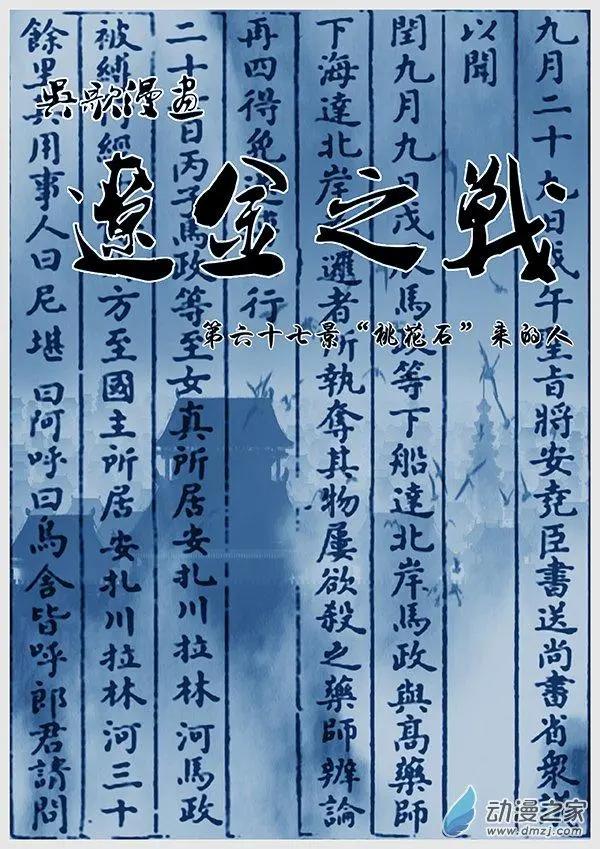 吳歌漫畫
遼金之戰
第六十七景“桃花石”来的人
九月二十九日戊午旨將安堯臣書送尚書省衆議
以聞
閏九月九日戊馬政等下船達北岸馬政與高藥師
下海達北岸邏者所執奪其物屢欲殺之藥師辨論
再四得免行
二十日丙子馬政等至女真所居安扎川拉林河馬政
被縛經方至國主所居安扎川拉林河三十
餘里其用事人曰尼堪曰阿呼曰烏舍皆呼郎君詰問
动漫之家
www.dmzj.com